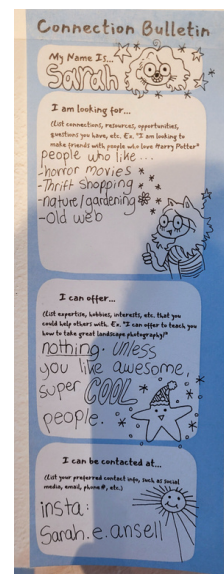 Connection Bulletin
My Name Is...
Sarah
I am looking for...
(List connections, resources, opportunities,
questions you have, etc. Ex. "I am looking to
make friends with people who love Harry Potter"
people who like...
-horror movies
-Thrift shopping
-nature/gardening
-Old web
I can offer...
(List expertise, hobbies, interests, etc. that you
could help others with. Ex. "I can offer to teach you
how to take great landscape photography!"
nothing. Unless
you like awesome,
super COOL
people.
I can be contacted at...
(List your preferred contact info, such as social
media, email, phone #, etc.)
insta:
Sarah.e.ansell